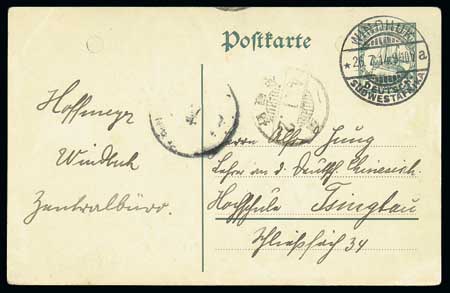 Postkarte
WINDHUK
a
* 26.7.14
DEUTSCH-
SÜDWESTAFRIKA
Hoffmeyer
Windhuk
Zentralbüro.
Herrn Alfred Jung
Lehrer an d. Deutsch Chinesisch
Hochschule Tsingtau
Schließfach 34